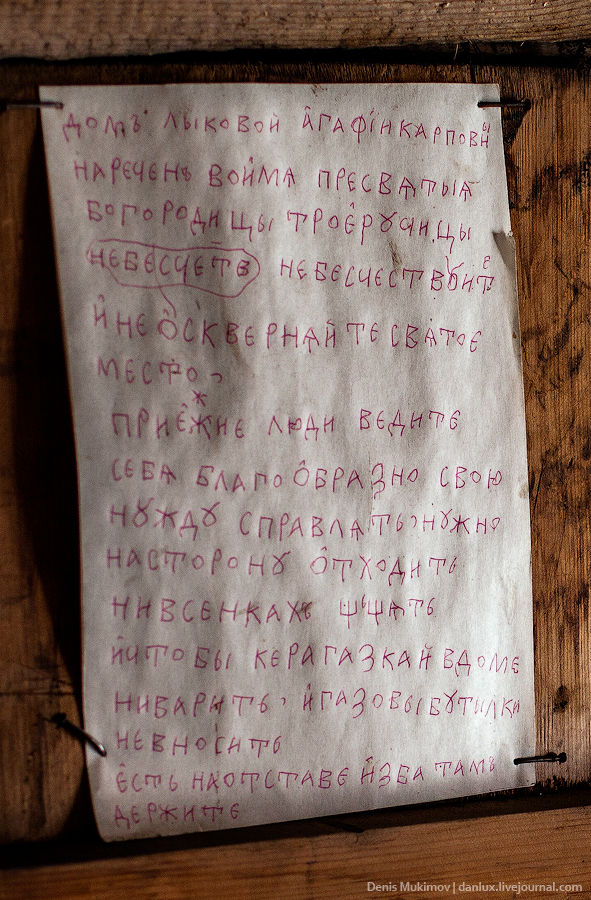 домъ лыковой агафiи карповны
наречень воима пресватыѧ
богородицы троеручицы
небесчете небесчествȣите
й не ѡскверназйте сватое
место,
приежние люди ведите
себѧ благоѻбразно свою
нȣждȣ справлѧть, нȣжно
насторонȣ ѻтходить
нивсенкахъ щщать
йчтобы керагазкай вдоме
ниварить, йгазовы бȣтилки
невносить
есть наотставе йзба тамъ
держите
Denis Mukimov | danlux.livejournal.com